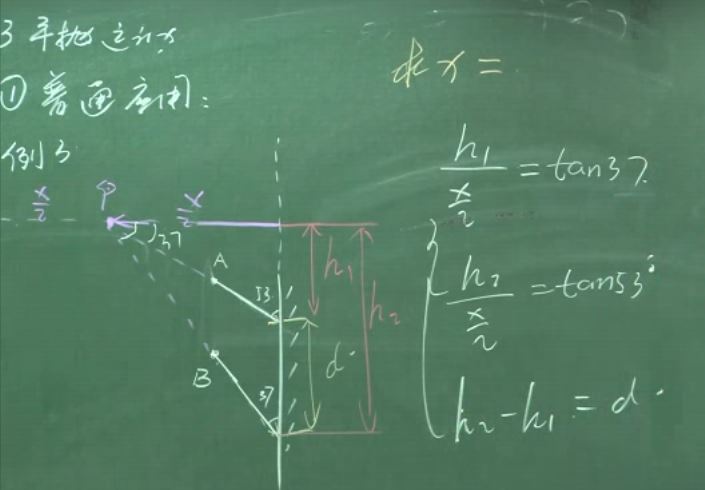 3 平抛
① 普通应用:
例3
求 x =
x/2
P
x/2
37
A
53°
B
37
h₁
h₂
d
h₁/(x/2) = tan37°
h₂/(x/2) = tan53°
h₂-h₁ = d.